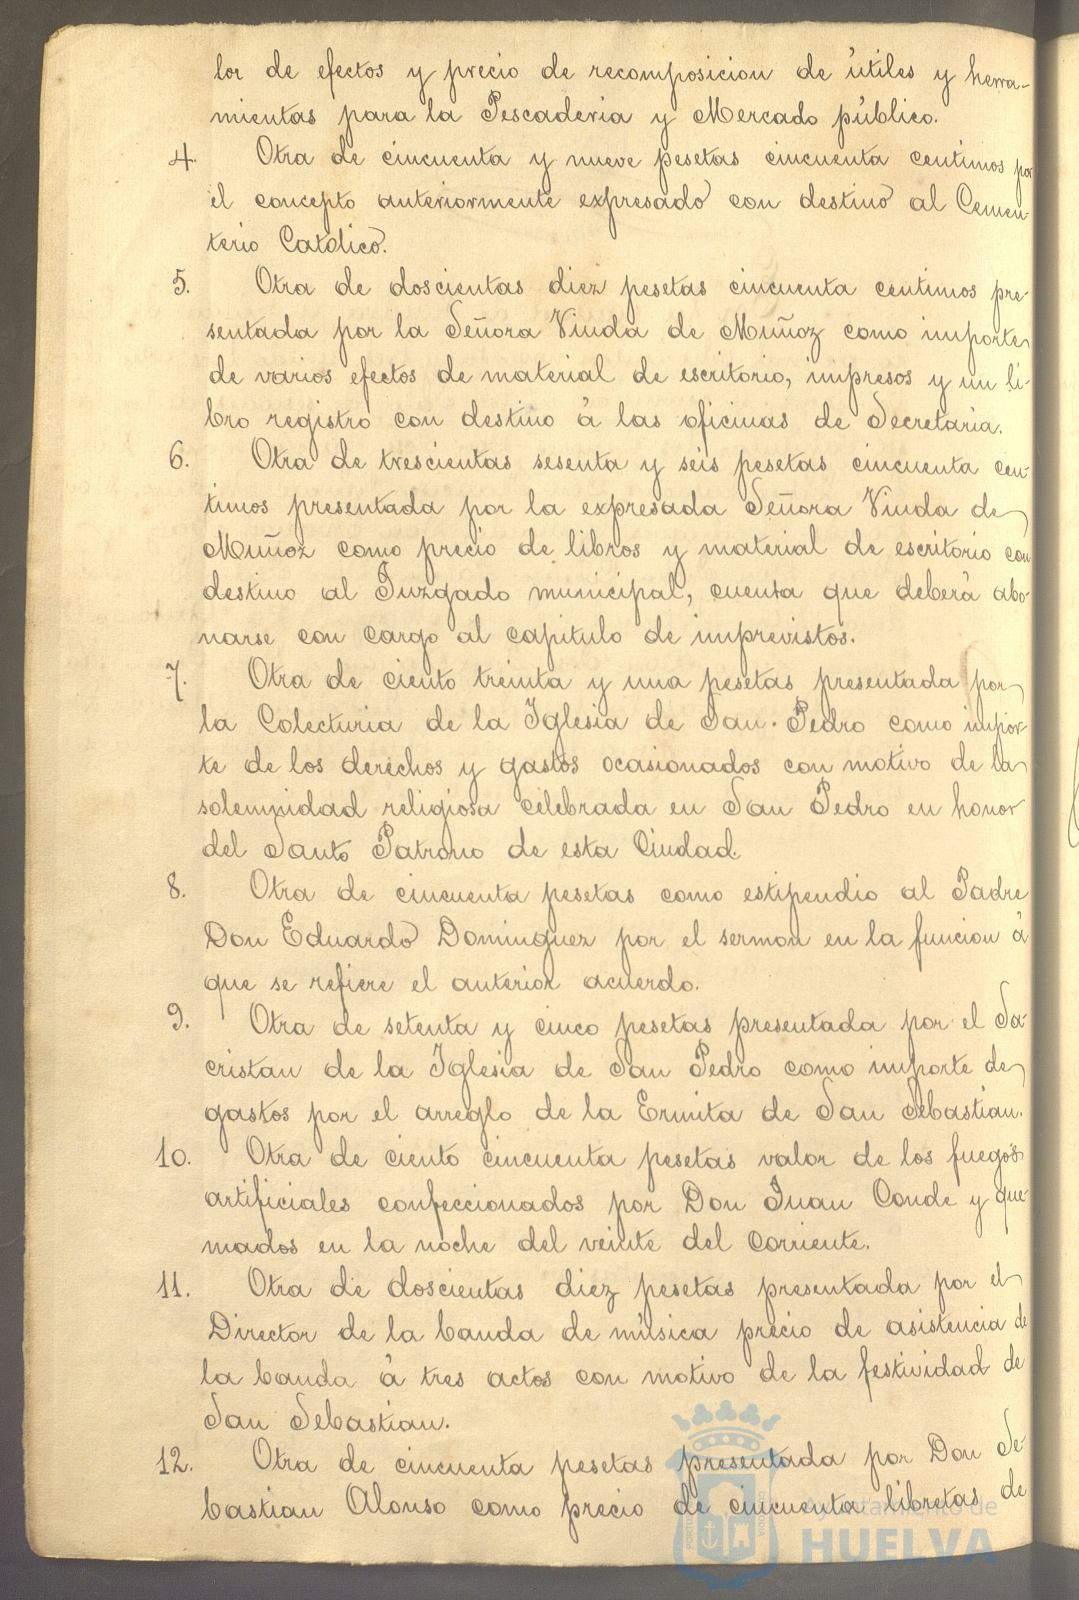 lor de efectos y precio de recomposicion de útiles y herra-
mientas para la Pescaderia y Mercado público.
4. Otra de cincuenta y nueve pesetas cincuenta centimos por
el concepto anteriormente expresado con destino al Cemen-
terio Católico.
5. Otra de doscientas diez pesetas cincuenta centimos pre-
sentada por la Señora Viuda de Muñoz como importe
de varios efectos de material de escritorio, impresos y un li-
bro registro con destino á las oficinas de Secretaria.
6. Otra de trescientas sesenta y seis pesetas cincuenta cen-
timos presentada por la expresada Señora Viuda de
Muñoz como precio de libros y material de escritorio con
destino al Juzgado municipal, cuenta que deberá abo-
narse con cargo al capitulo de imprevistos.
7. Otra de ciento treinta y una pesetas presentada por
la Colecturia de la Iglesia de San Pedro como impor-
te de los derechos y gastos ocasionados con motivo de la
solemnidad religiosa celebrada en San Pedro en honor
del Santo Patrono de esta Ciudad.
8. Otra de cincuenta pesetas como estipendio al Padre
Don Eduardo Dominguez por el sermon en la funcion á
que se refiere el anterior acuerdo.
9. Otra de setenta y cinco pesetas presentada por el Sa-
cristan de la Iglesia de San Pedro como importe de
gastos por el arreglo de la Ermita de San Sebastian.
10. Otra de ciento cincuenta pesetas valor de los fuegos
artificiales confeccionados por Don Juan Conde y que-
mados en la noche del veinte del corriente.
11. Otra de doscientas diez pesetas presentada por el
Director de la banda de música precio de asistencia de
la banda á tres actos con motivo de la festividad de
San Sebastian.
12. Otra de cincuenta pesetas presentada por Don Se-
bastian Alonso como precio de cincuenta libretas de
Ayuntamiento de
HUELVA